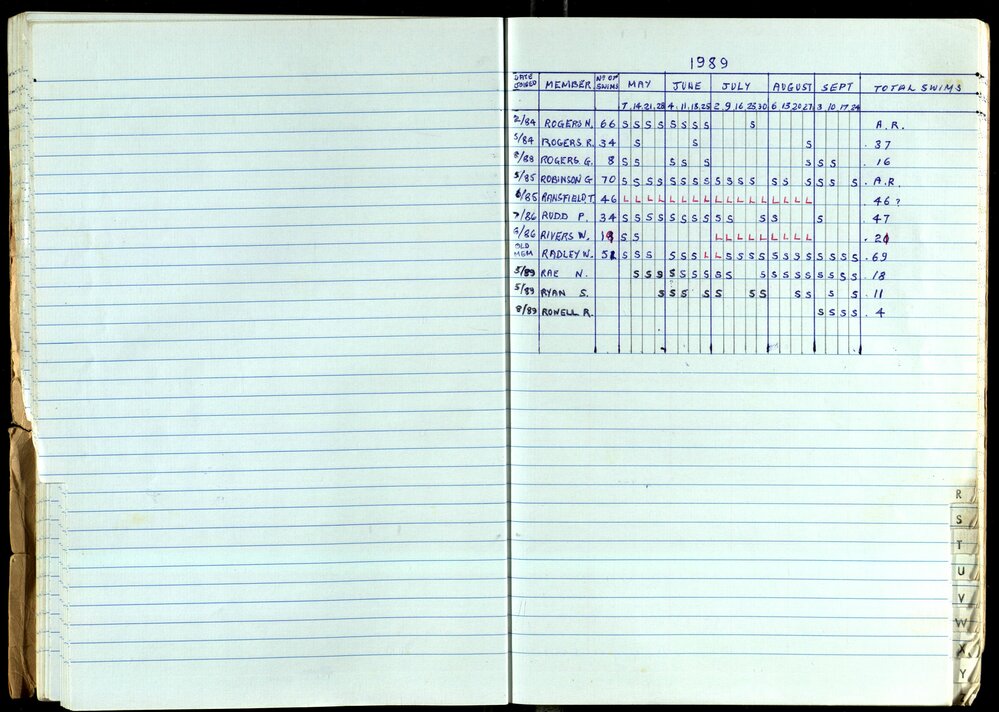 1989
DATE JOINED MEMBER Nº OF SWIMS MAY JUNE JULY AUGUST SEPT TOTAL SWIMS
7 14 21 28 4 11 18 25 2 9 16 23 30 6 13 20 27 3 10 17 24
2/84 ROGERS N. 66 S S S S S S S S S A.R.
5/84 ROGERS R. 34 S S S . 37
8/88 ROGERS G. 8 S S S S S S S S . 16
5/85 ROBINSON G 70 S S S S S S S S S S S S S S S S S S . A.R.
6/85 RANSFIELD.T. 46 L L L L L L L L L L L L L L L L L 46 ?
7/86 RUDD P. 34 S S S S S S S S S S S S S . 47
9/86 RIVERS W. S S L L L L L L L L L .
OLD MEM RADLEY W. S S S S S S L L S S S S S S S S S S S S . 69
5/89 RAE N. S S S S S S S S S S S S S S S S S S . 18
5/89 RYAN S. S S S S S S S S S S S . 11
8/89 ROWELL R. S S S S . 4
R
S
T
U
V
W
X
Y